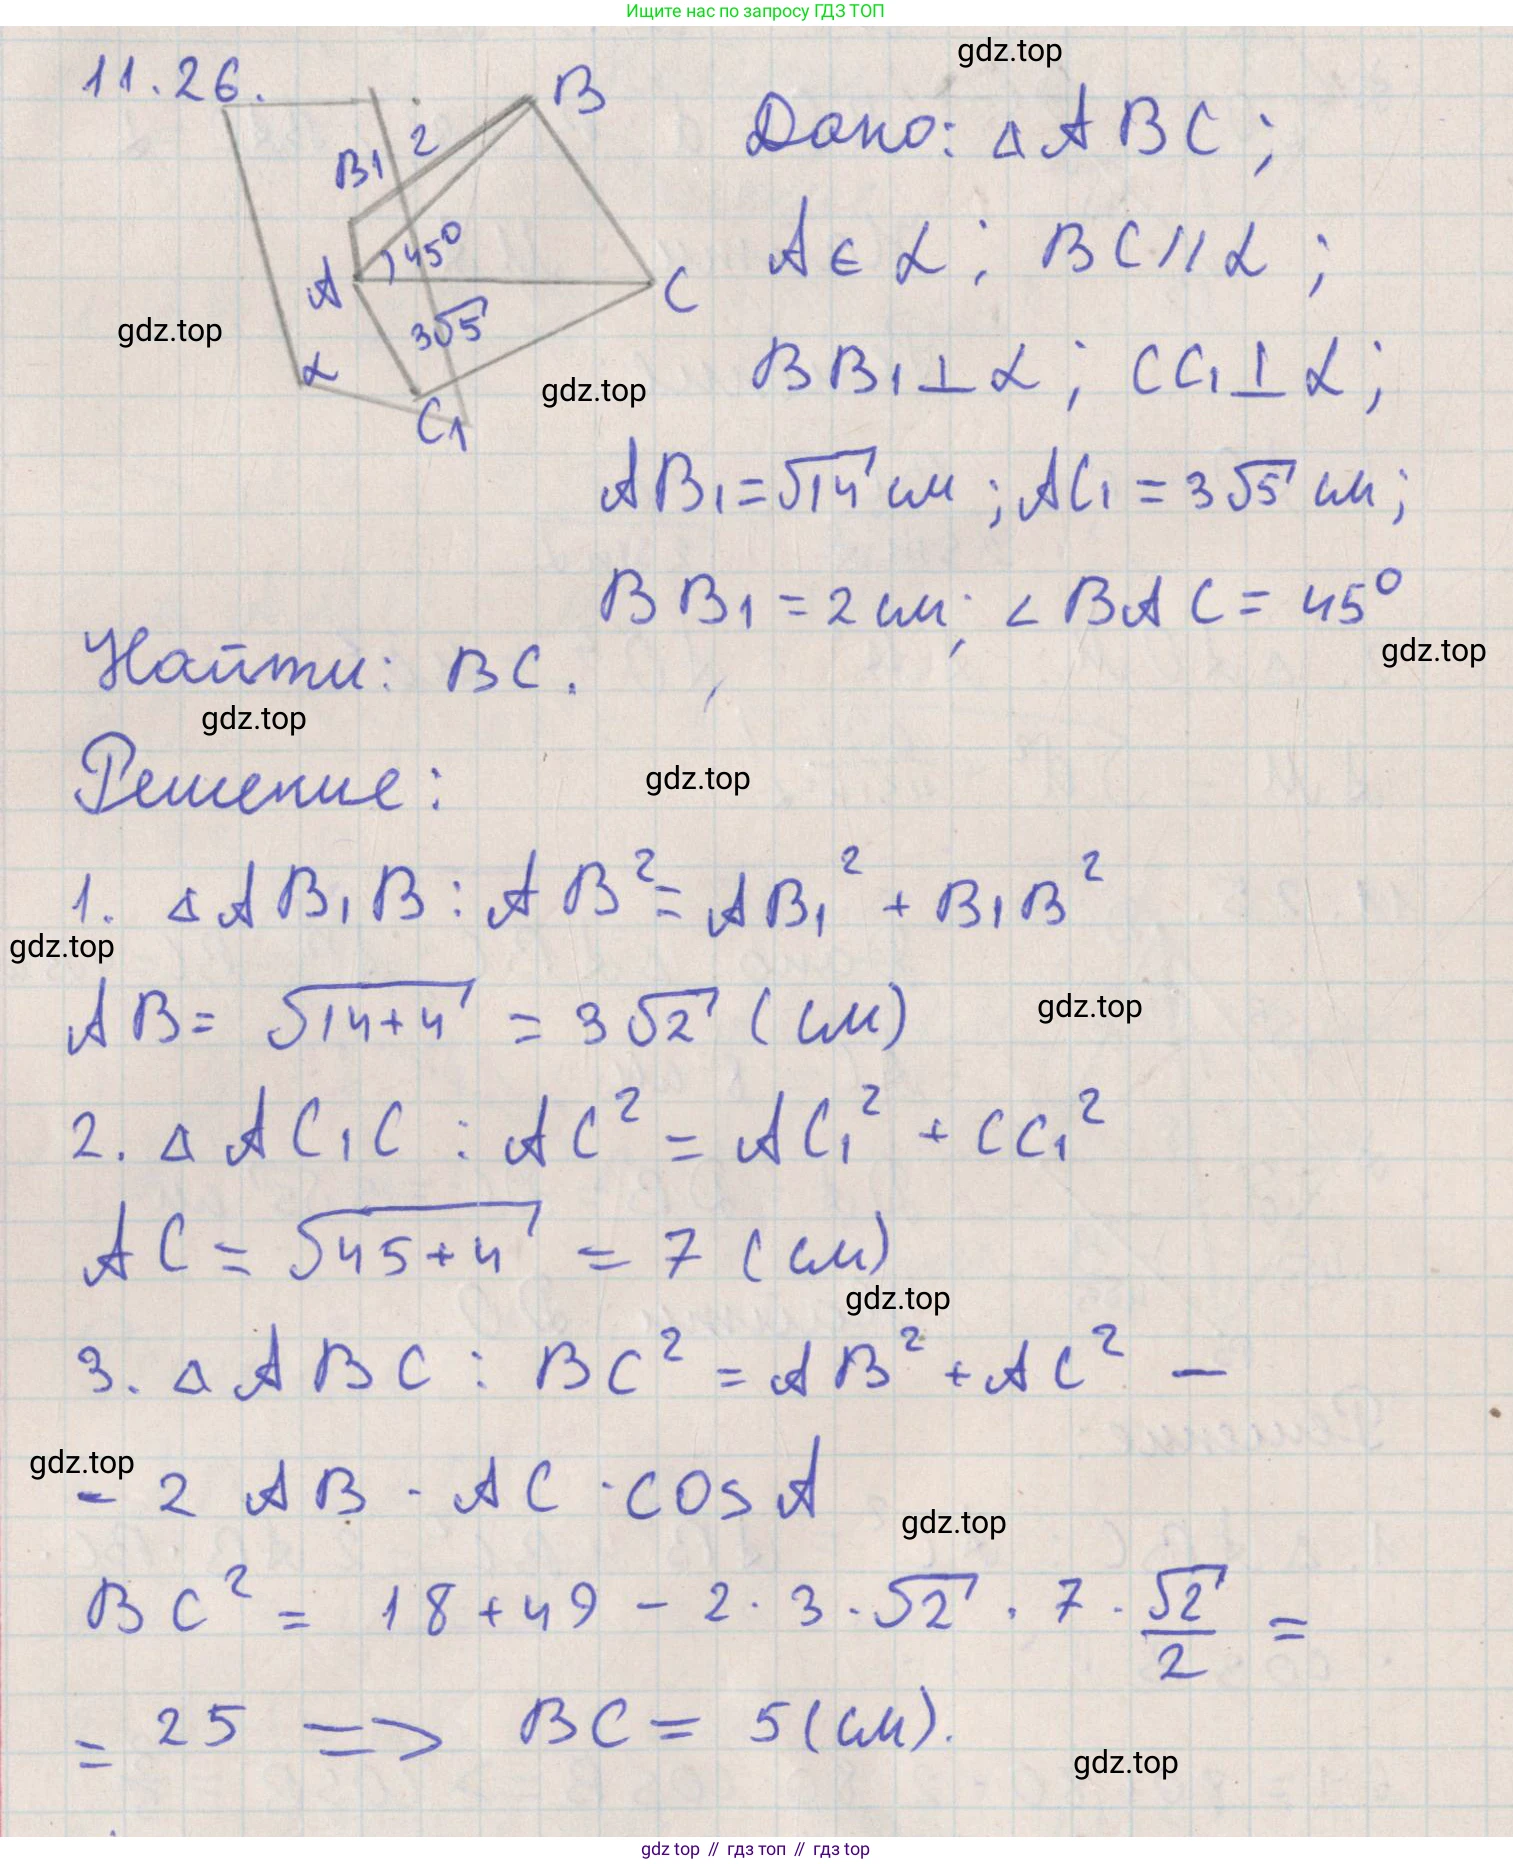 Ищите нас по запросу ГДЗ ТОП
gdz.top
11.26.
B
B1
2
A
45°
C
3√5
α
C1
Дано: △ABC;
A∈α; BC∥α;
gdz.top
BB₁⊥α; CC₁⊥α;
gdz.top
AB₁=√14 см; AC₁=3√5 см;
BB₁=2 см; ∠BAC=45°
gdz.top
Найти: BC.
gdz.top
Решение:
gdz.top
1. △AB₁B: AB²=AB₁²+B₁B²
gdz.top
AB=√14+4=3√2 (см)
gdz.top
2. △AC₁C: AC²=AC₁²+CC₁²
AC=√45+4=7 (см)
gdz.top
3. △ABC: BC²=AB²+AC²−
gdz.top
−2AB·AC·cosA
gdz.top
BC²=18+49−2·3·√2·7·√2/2=
=25 => BC=5(см).
gdz.top
gdz top // гдз топ // gdz top